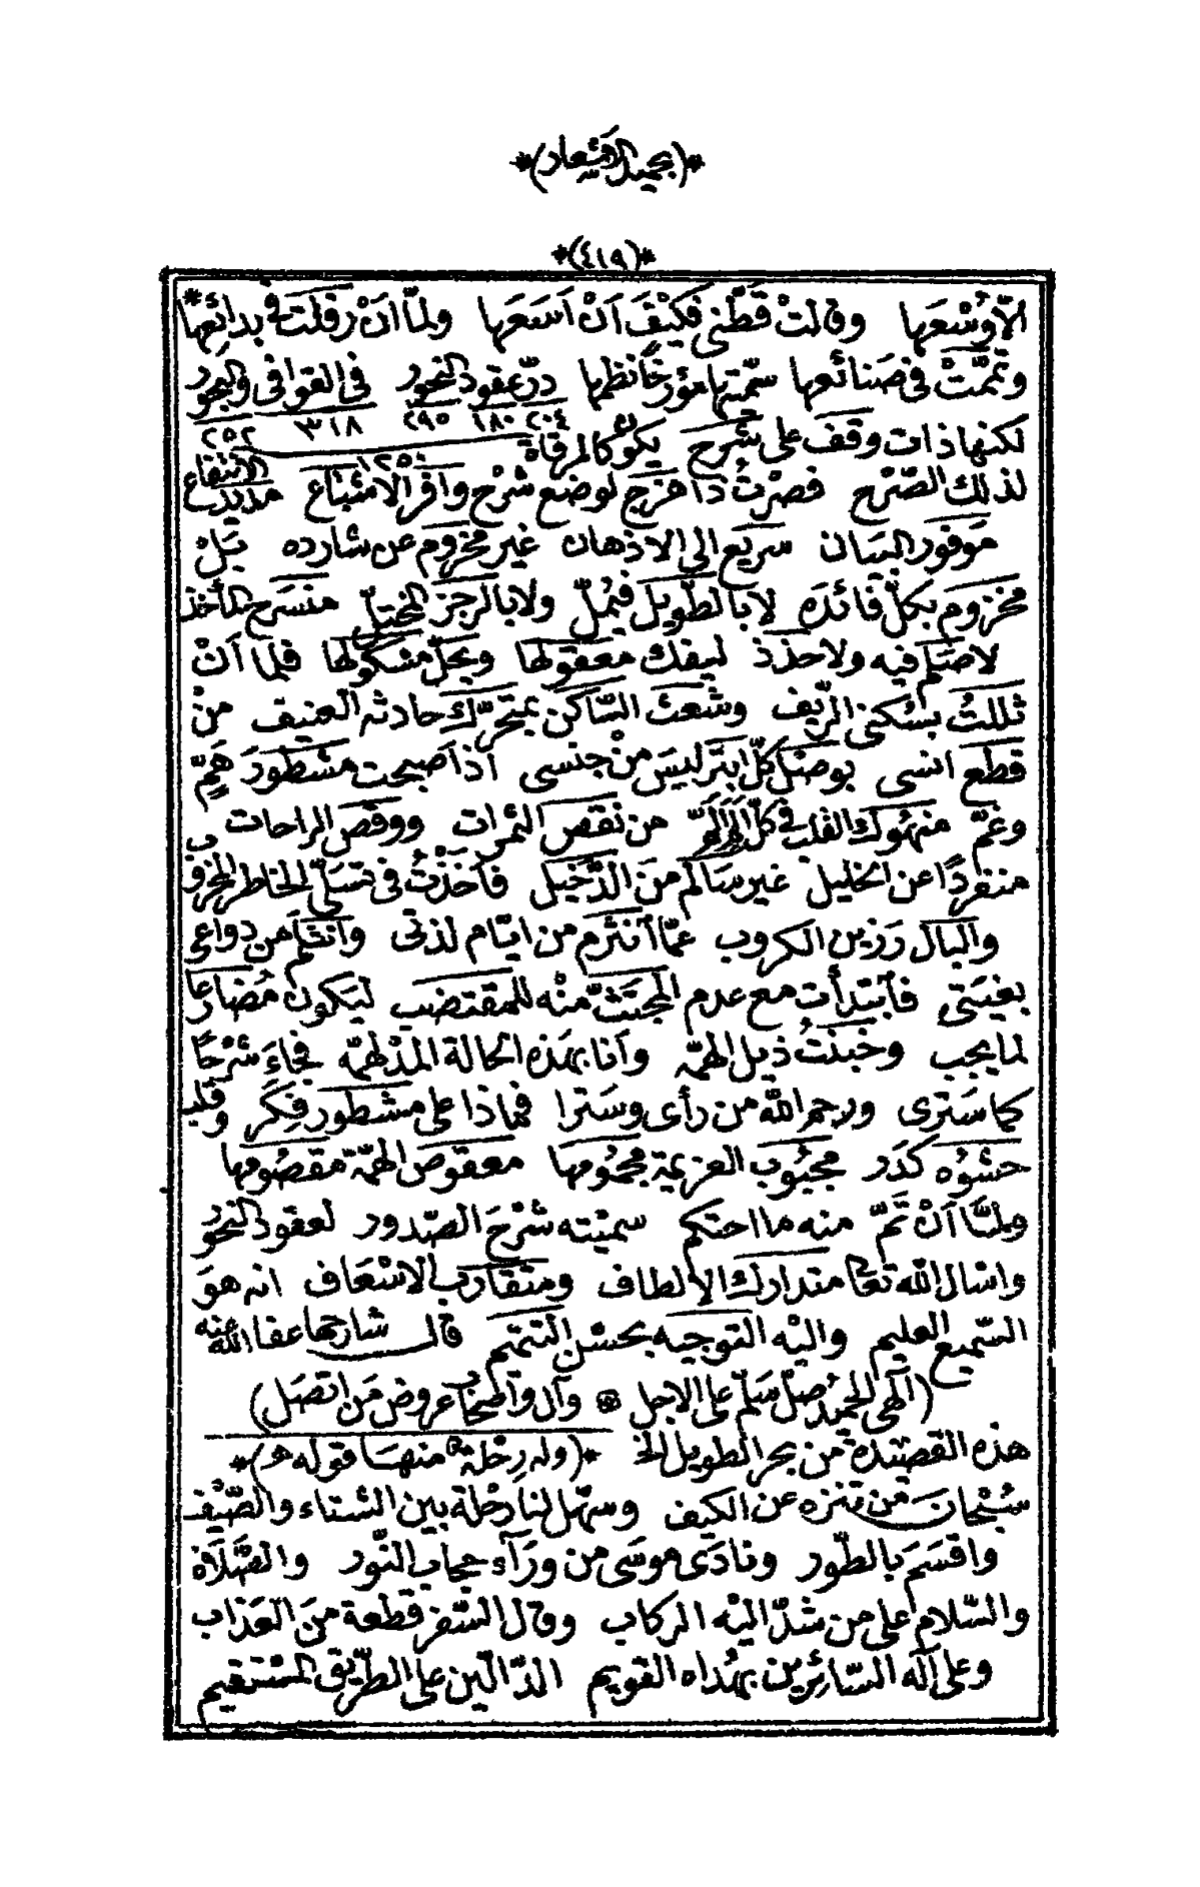 *(بحميد الاسعاد)*
*(٤١٩)*
الّا وُسْعَها وقالتْ قَطْنى فكَيْفَ اَنْ اَسَعَها ولمّا انْ رفلتْ فى بدائعها*
وتمّمَتْ فى صَنائعها سمّيتها مؤرخاً نظمها درّ عقود النحور فى القوافى والبحور
٢٠٤ ١٨٠ ٢٩٥ ٣١٨ ٢٥٢
لكنها ذات وقف على شرح يكون كالمرقاة
١٢٥٠
لذلك الصّرْح فصرْتُ ذا هزج لوضع شرْح وافر الاشباع مديد الانتفاع
مَوفور البيان سريع الى الاذهان غير مخروم عن شارده بَلْ
مخزوم بكلّ فائدَه لا بالطّويل فيُملّ ولا بالرجز المختلّ منسَرح المأخذ
لا صَلم فيه ولا حذذ ليفك معقولها ويحلّ مشكولها فلما اَنْ
ثللتُ بسُكنى الرّيف وشعث السّاكن بمتحرّك حادثه العنيف منْ
قطع انسى بوصْل كلّ ابتَر ليسَ منْ جنسى اذ اَصبحت مشطورَ هَمٍّ
وغمّ منهوك القلب فى كلّ اَلَم اَلَمّ من نقص الثمرات ووقص الراحات
منفردًا عن الخليل غير سَالم منَ الدّخيل فاَخَذْتُ فى تسَلّى الخاطر المحزون
والبال رَزين الكروب عمّا انثرم من ايّام لذتى وانثلَم من دواعى
بغيَتى فاَبتدأت مع عدم المجتَثّ منْه للمقتضب ليَكون مُضارعا
لما يجب وخبَنْتُ ذيل الهمّه واَنا بهَذه الحالة المدْلهمّه فجاءَ شرْحًا
كما سَترى ورحم الله من رأى وسَترا فماذا على مشطور فِكَر وقلب
حشوُه كدَر مجبُوب العزيمة مجمُومها معقوص الهمّة مقصُومها
ولمّا اَنْ تَمَّ منه ما احتكم سميْته شرْحَ الصّدور لعقود النحور
واسَال الله تعَالى متدارك الالطاف ومتقارب الاسْعَاف انه هوَ
السّميع العليم واليْه التوجيه بحسْن التتميم قال شارحها عفا الله عنه
(الَهى الحمْد صلّ سَلم على الاجل ۞ وآل واَصْحاب عروض مَن اتصَل)
هذه القصيْدة من بحر الطويل الخ *(وله رِحْلة منهَا قوله)*
سُبْحانَ مَن تنزه عن الكيف وسهّل لنا رحْلة بين الشتاء والصّيْف
واقسَمَ بالطّور ونادَى موسَى من ورَآء حجاب النّور والصّلَاة
والسّلام على من شدّ اليْه الركاب وقال السّفر قطعة منَ العَذاب
وعلى آله السّائِرين بهُداه القويم الدّالّين على الطّريق المسْتقيم